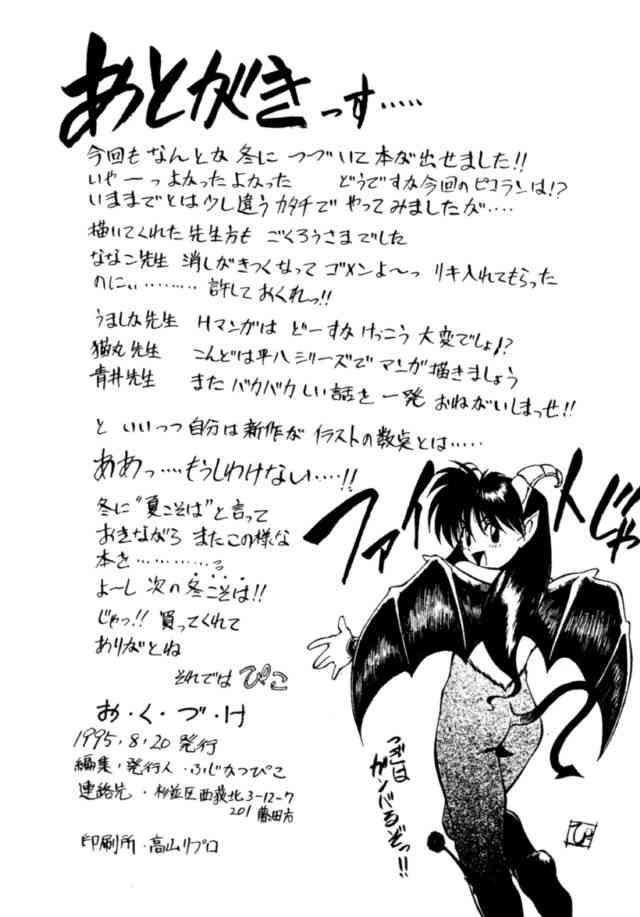 あとがきっす‥‥‥
今回もなんとな 冬に つづいて 本が出せました!!
いやーっ よかったよかった どうですな今回のピコランは!?
いままでとは少し違うカタチで やってみましたが‥‥
描いてくれた 先生方も ごくろうさまでした
ななこ先生 消しがきつくなって ゴメンよ〜っ リキ入れてもらった
のにぃ‥‥‥‥ 許しておくれーっ!!
うましな先生 Hマンガは どーすな けっこう 大変でしょ!?
猫丸先生 こんどは平八シリーズで マンガ描きましょう
青井先生 また バカバカしい話を 一発 おねがいしまっせ!!
と いいつつ 自分は新作が イラストの数点とは‥‥‥
ああっ‥‥もうしわけない‥‥!!
冬に"夏こそは"と言って
おきながら またこの様な
本を‥‥‥‥‥っ
よーし 次の冬こそは!!
じゃっ!! 買ってくれて
ありがとね
それでは ぴこ
ファイトじゃ
お・く・づ・け
1995.8.20 発行
編集・発行人・ふじなつぴこ
連絡先・杉並区西荻北3-12-7
201 藤田方
印刷所・高山リプロ
つぎは
ガンバるぞっ!!
ぴ